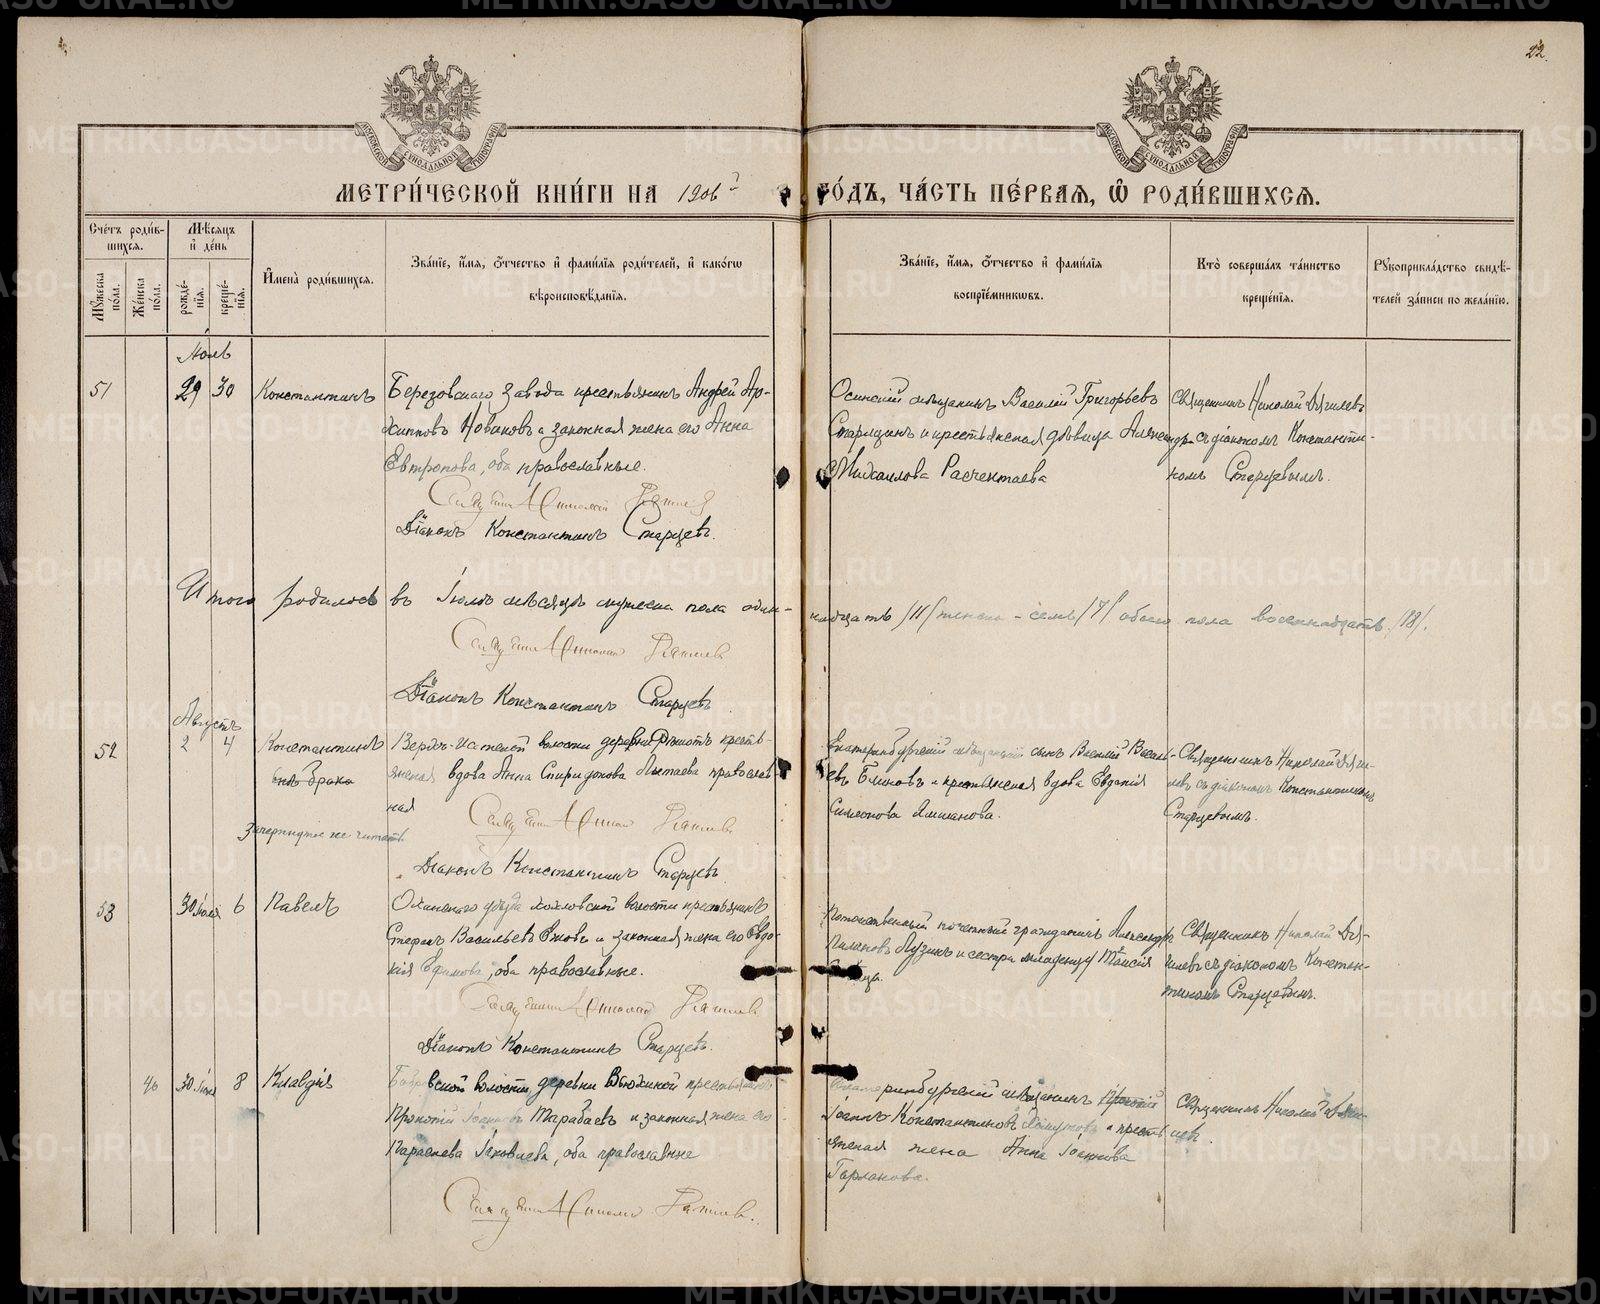 22.
МОСКОВСКОЙ СѴНОДАЛЬНОЙ ТИПОГРАФІИ
МОСКОВСКОЙ СѴНОДАЛЬНОЙ ТИПОГРАФІИ
МЕТРИ́ЧЕСКОЙ КНИ́ГИ НА 1906й ГО́ДЪ, ЧА́СТЬ ПЕ́РВАЯ, Ѡ РОДИ́ВШИХСЯ.
Сче́тъ роди́вшихся.
Му́жеска по́ла.
Же́нска по́ла.
Мѣ́сяцъ и де́нь
рожде́нїя.
креще́нїя.
Имена̀ роди́вшихся.
Зва́нїе, и́мя, о́тчество и фами́лїя роди́телей, и како́гѡ
вѣроисповѣ́данїя.
Зва́нїе, и́мя, о́тчество и фами́лїя
воспрїе́мникѡвъ.
Кто̀ соверша́лъ та́инство
креще́нїя.
Рꙋкоприкла́дство свидѣ́телей за́писи по жела́нїю.
Іюль
51 29 30 Константинъ
Березовскаго завода крестьянинъ Андрей Архипповъ Новиковъ и законная жена его Анна
Евтропова, оба православные.
Священникъ Николай Дягилев
Дїаконъ Константинъ Старцевъ.
Осинскій мѣщанинъ Василій Григорьевъ
и крестьянская дѣвица Александра
Михаилова
Священникъ Николай Дягилевъ
съ діакономъ Константиномъ Старцевымъ.
Итого родилось въ Іюлѣ мѣсяцѣ мужеска пола одиннадцать /11/ женска - семь /7/ обоего пола восемнадцать /18/.
Священникъ Николай Дягилев
Дїаконъ Константинъ Старцевъ
Августъ
52 2 4 Константинъ
внѣ брака
Зачеркнутое не читать
волости деревни крестьянская вдова Анна Спиридонова православная
Священникъ Николай Дягилев
Дїаконъ Константинъ Старцевъ
Екатеринбургскій мѣщанскій сынъ Василій Васильевъ Блиновъ и крестьянская вдова Евдокія
Симеонова
Священникъ Николай Дягилевъ съ діакономъ Константиномъ
Старцевымъ.
53 30 Іюля 6 Павелъ
Оханскаго уѣзда волости крестьянинъ
Стефанъ Васильевъ и законная жена его Евдокія Ефимова, оба православные.
Священникъ Николай Дягилев
Дїаконъ Константинъ Старцевъ.
Потомственный почетный гражданинъ Александръ
Лузинъ и сестра младенца Таисія
Священникъ Николай Дягилевъ съ діакономъ Константиномъ Старцевымъ.
40 30 Іюля 8 Клавдія
волости, деревни крестьянинъ
Прокопій Тарабаевъ и законная жена его
Параскева Іаковлева, оба православные
Священникъ Николай Дягилев.
Екатеринбургскій мѣщанинъ
Іоаннъ Константиновъ и крестьянская жена Анна Іоаннова
Священникъ Николай Дягилевъ.
METRIKI.GASO-URAL.RU